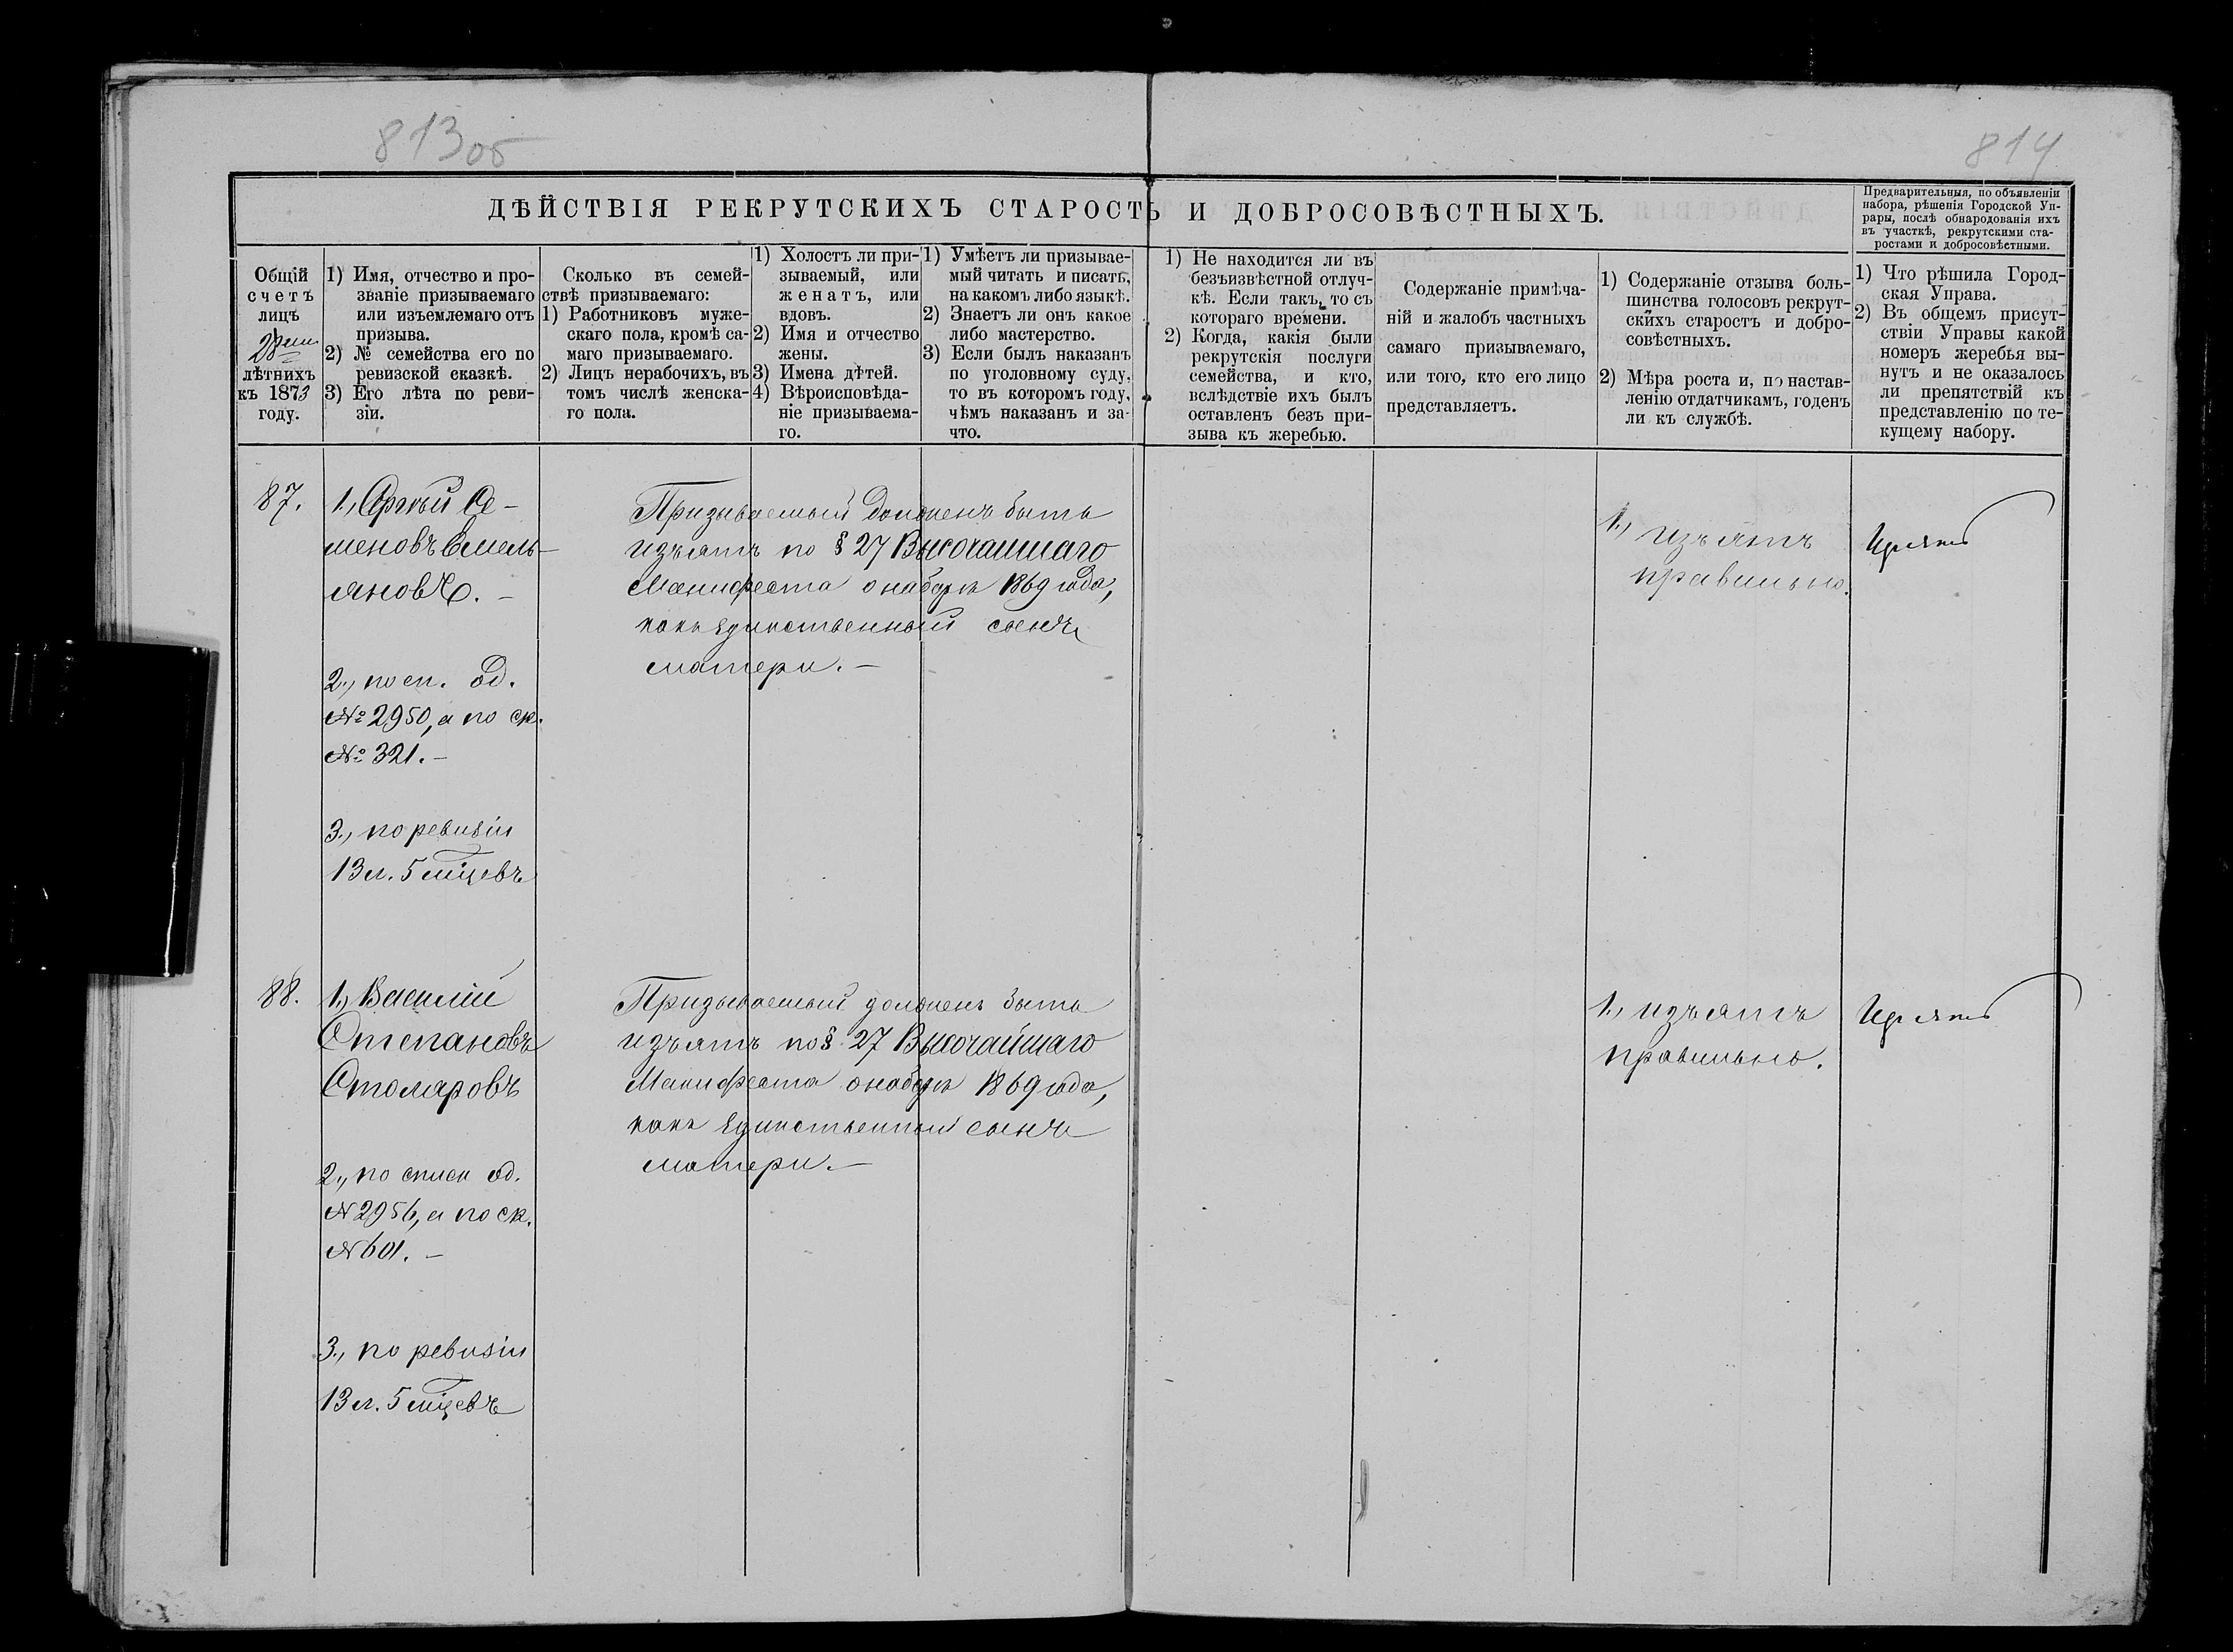 813 об
814
ДѢЙСТВІЯ РЕКРУТСКИХЪ СТАРОСТЪ И ДОБРОСОВѢСТНЫХЪ.
Предварительныя, по объявленіи
набора, рѣшенія Городской Уп-
рары, послѣ обнародованія ихъ
въ участкѣ, рекрутскими ста-
ростами и добросовѣстными.
Общій
счетъ
лицъ
лѣтнихъ
къ 1873
году.
1) Имя, отчество и про-
званіе призываемаго
или изъемлемаго отъ
призыва.
2) № семейства его по
ревизской сказкѣ.
3) Его лѣта по реви-
зіи.
Сколько въ семей-
ствѣ призываемаго:
1) Работниковъ муже-
скаго пола, кромѣ са-
маго призываемаго.
2) Лицъ нерабочихъ, въ
томъ числѣ женска-
го пола.
1) Холостъ ли при-
зываемый, или
женатъ, или
вдовъ.
2) Имя и отчество
жены.
3) Имена дѣтей.
4) Вѣроисповѣда-
ніе призываема-
го.
1) Умѣетъ ли призывае-
мый читать и писать,
на какомъ либо языкѣ.
2) Знаетъ ли онъ какое
либо мастерство.
3) Если былъ наказанъ
по уголовному суду,
то въ которомъ году,
чѣмъ наказанъ и за-
что.
1) Не находится ли въ
безъизвѣстной отлуч-
кѣ. Если такъ, то съ
котораго времени.
2) Когда, какія были
рекрутскія послуги
семейства, и кто,
вслѣдствіе ихъ былъ
оставленъ безъ при-
зыва къ жеребью.
Содержаніе примѣча-
ній и жалобъ частныхъ
самаго призываемаго,
или того, кто его лицо
представляетъ.
1) Содержаніе отзыва боль-
шинства голосовъ рекрут-
скихъ старостъ и добро-
совѣстныхъ.
2) Мѣра роста и, по настав-
ленію отдатчикамъ, годенъ
ли къ службѣ.
1) Что рѣшила Город-
ская Управа.
2) Въ общемъ присут-
ствіи Управы какой
номеръ жеребья вы-
нутъ и не оказалось
ли препятствій къ
представленію по те-
кущему набору.
87.
1., Сергѣй Се-
меновъ Емель-
яновъ. –
2., по сп. од.
№ 2950, а по ск.
№ 321. –
3., по ревизіи
13 л. 5 мѣцевъ
Призываемый долженъ быть
изъятъ по § 27 Высочайшаго
Манифеста о наборѣ 1869 года,
какъ единственный сынъ
матери. –
1., изъятъ
правильно.
Изъятъ
88.
1., Василій
Степановъ
Столяровъ
2., по списк од.
№ 2956, а по ск.
№ 601. –
3., по ревизіи
13 л. 5 мѣцевъ
Призываемый долженъ быть
изъятъ по § 27 Высочайшаго
Манифеста о наборѣ 1869 года,
какъ единственный сынъ
матери. –
1., изъятъ
правильно.
Изъятъ